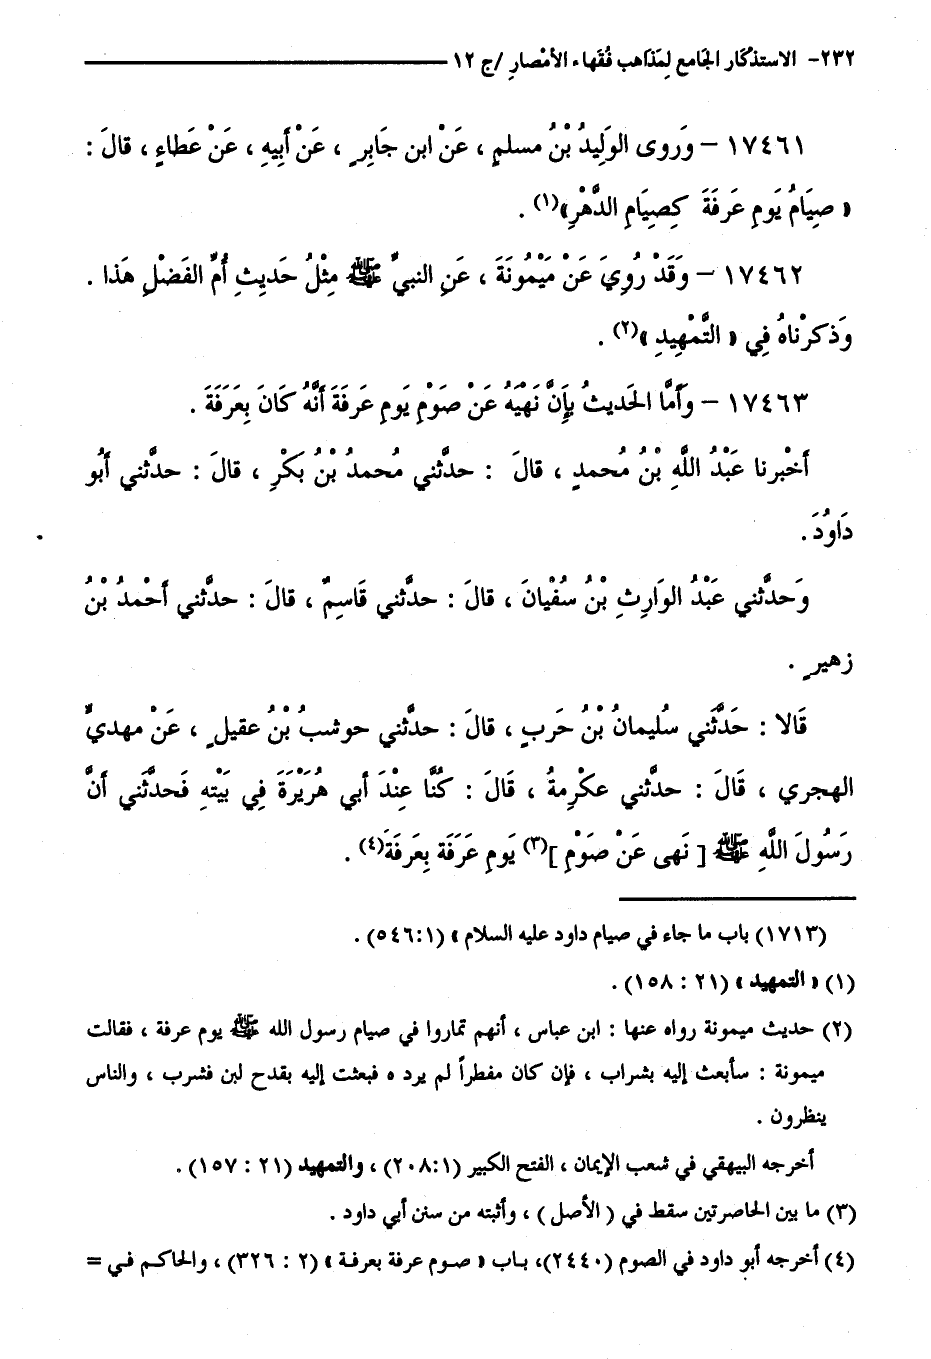 ٢٣٢- الاستذكار الجَامع لِمَذاهب فُقَهاء الأمْصارِ /ج ١٢
١٧٤٦١ – وَروى الوَلِيدُ بْنُ مسلمٍ ، عَنْ ابن جَابِرٍ ، عَنْ أَبِيهِ ، عَنْ عَطاءٍ ، قالَ :
« صِيَامُ يَومِ عَرفَةَ كَصِيَامِ الدَّهْرِ»(١) .
١٧٤٦٢ – وَقَدْ رُوِيَ عَنْ مَيْمُونَةَ ، عَنِ النبيِّ ﷺ مِثْلُ حَديثِ أُمِّ الفَضْلِ هَذا .
وَذكرْناهُ فِي « التَّمْهِيدِ »(٢) .
١٧٤٦٣ – وَأَمَّا الحَديثُ بِإِنَّ نَهْيَهُ عَنْ صَوْمِ يَومِ عَرفَةَ أَنَّهُ كَانَ بِعَرَفَةَ .
أَخْبرنا عَبْدُ اللَّهِ بْنُ مُحمدٍ ، قالَ : حدَّثني مُحمدُ بْنُ بكْرٍ ، قالَ : حدَّثني أَبُو
دَاوُدَ.
وَحدَّثني عَبْدُ الوَارِثِ بْنُ سُفْيانَ ، قالَ : حدَّثني قَاسِمٌ ، قالَ : حدَّثني أَحْمدُ بْنُ
زهيرٍ .
قَالا : حَدَّثَني سُليمانُ بْنُ حَربٍ ، قالَ : حدَّثني حوشبُ بْنُ عقيلٍ ، عَنْ مهديٍّ
الهجري ، قَالَ : حدَّثني عكْرِمةُ ، قَالَ : كُنَّا عِنْدَ أبي هُرَيْرَةَ فِي بَيْتهِ فَحدَّثَني أنَّ
رَسُولَ اللَّهِ ﷺ [ نَهى عَنْ صَوْمِ ](٣) يَومِ عَرَفَة بِعَرفَةَ(٤) .
(١٧١٣) باب ما جاء في صيام داود عليه السلام » (٥٤٦:١) .
(١) « التمهيد » (٢١ : ١٥٨) .
(٢) حديث ميمونة رواه عنها : ابن عباس ، أنهم تماروا في صيام رسول الله ﷺ يوم عرفة ، فقالت
ميمونة : سأبعث إليه بشراب ، فإن كان مفطراً لم يرد ه فبعثت إليه بقدح لبن فشرب ، والناس
ينظرون .
أخرجه البيهقي في شعب الإيمان ، الفتح الكبير (٢٠٨:١) ، والتمهيد (٢١ : ١٥٧) .
(٣) ما بين الحاصرتين سقط في ( الأصل ) ، وأثبته من سنن أبي داود .
(٤) أخرجه أبو داود في الصوم (٢٤٤٠)، باب « صوم عرفة بعرفة » (٢ : ٣٢٦) ، والحاكم في =